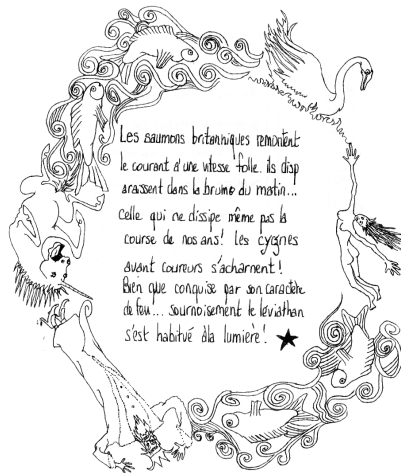 Les saumons britanniques remontent
le courant à une vitesse folle. ils disp
araissent dans la brume du matin...
Celle qui ne dissipe même pas la
course de nos ans! les cygnes
avant coureurs s'acharnent!
Bien que conquise par son caractère
de feu... sournoisement le léviathan
s'est habitué àla lumière!